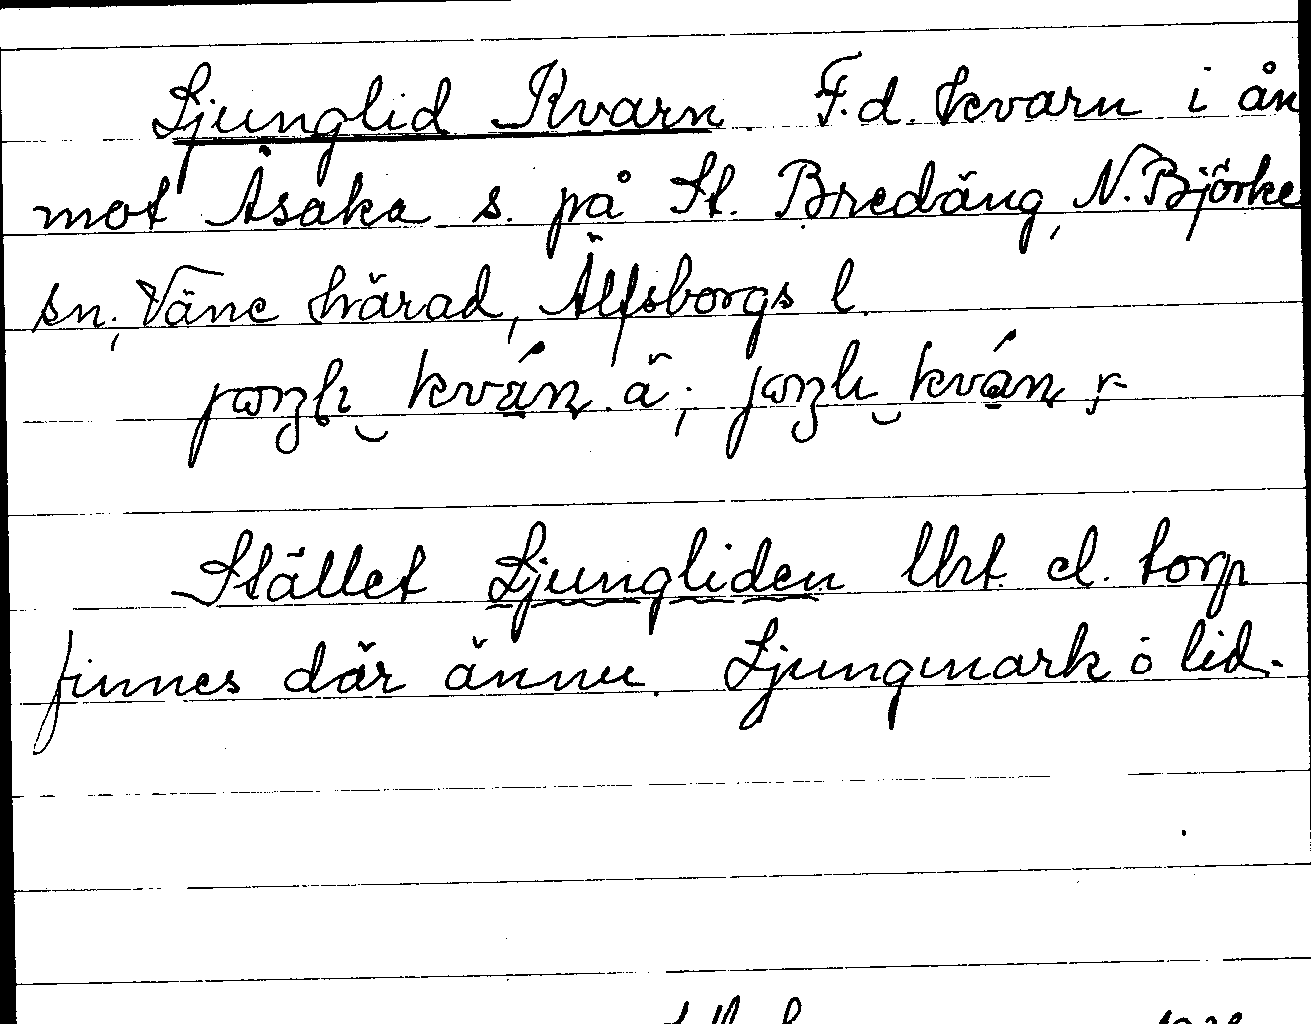 Ljunglid Kvarn. F.d. kvarn i ån
mot Åsaka s. på St. Bredäng, N. Björke
sn, Väne härad, Älfsborgs l.
Stället Ljungliden lht. el. torp
finnes där ännu. Ljungmark o lid.